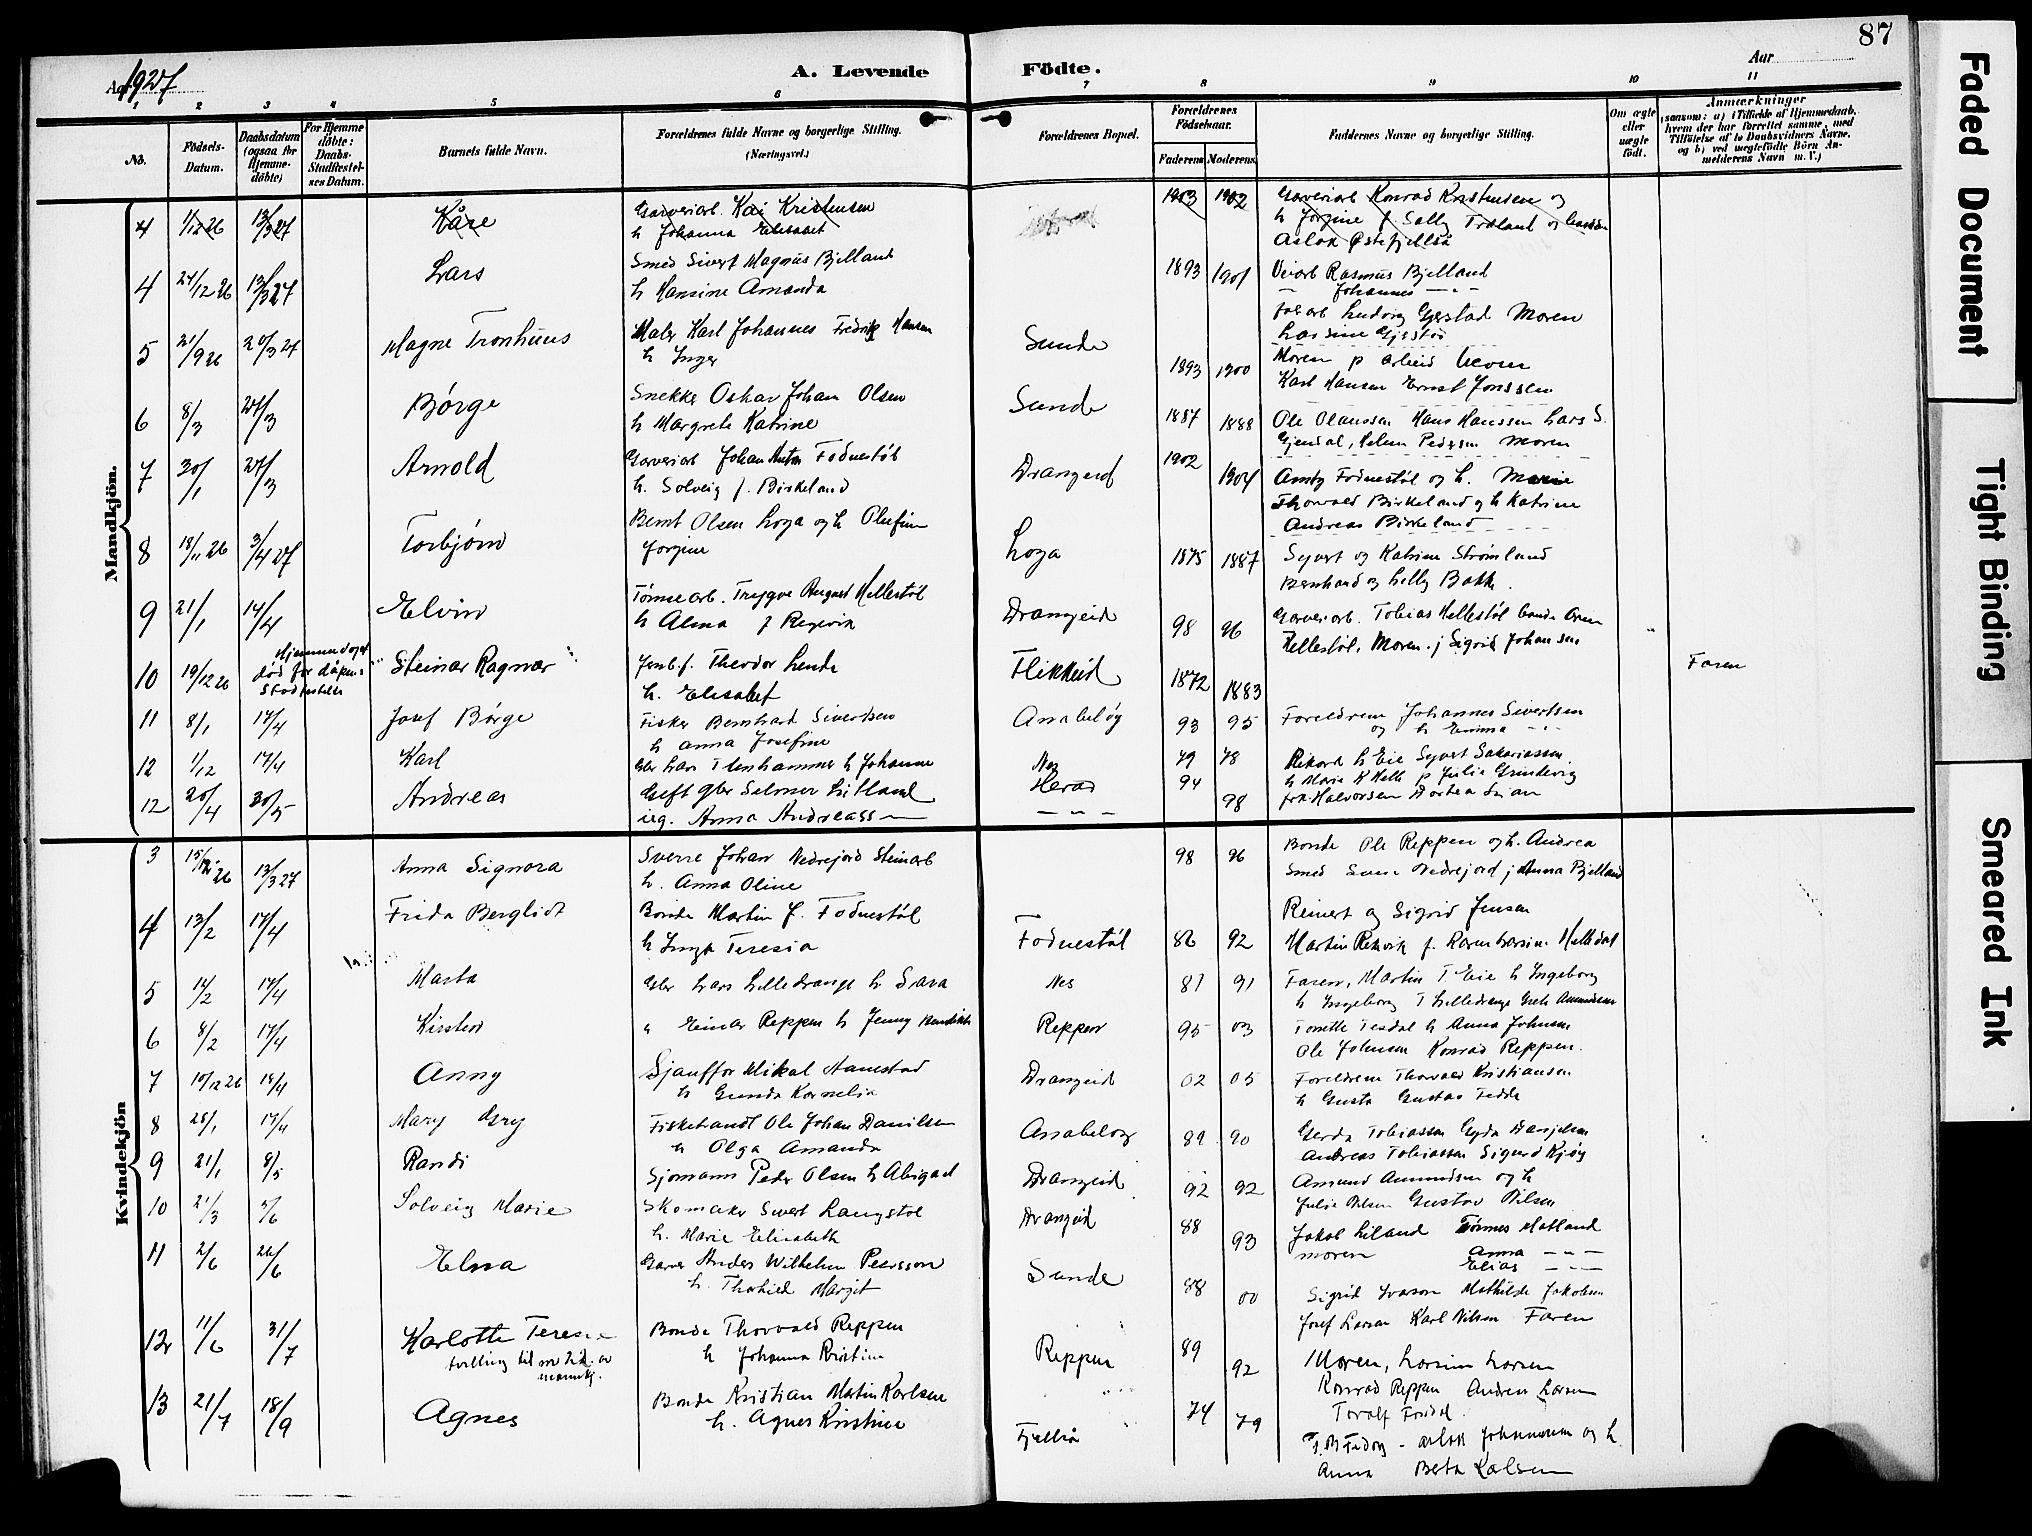 87
Aar 1927
A. Levende Födte.
Aar
1 2 3 4 5 6 7 8 9 10 11
No.
Födsels-Datum.
Daabsdatum (ogsaa for Hjemme-døbte)
For Hjemme døbte: Daabs-Stadfæstelses Datum.
Barnets fulde Navn.
Forældrenes fulde Navne og borgerlige Stilling. (Næringsvei.)
Forældrenes Bopæl.
Forældrenes Fødselsaar.
Faderens Moderens
Faddernes Navne og borgerlige Stilling.
Om ægte eller uægte født.
Anmærkninger
saasom: a) i Tilfælde af Hjemmedaab, hvem der har forrettet samme, med Tilföielse af to Daabsvidners Navne, og b) ved uægtefödte Börn Anmelderens Navn m. V.)
Mandkjön.
4 1/12 26 13/3 27 Kåre Garveriarb. Kai Kristensen 1903 1902 Garveriarb Konrad Kristensen og
h Johanna Elisabet h Jørgine f. Selly
Aslak Østefjellså
4 24/12 26 13/3 27 Lars Smed Sivert Magnus Bjelland 1893 1901 Veiarb Rasmus Bjelland
h Hansine Amanda Johannes - " -
Ludvig Gjerstad Moren
5 21/9 26 20/3 27 Magne Tronhuus Maler Karl Johannes Fredrik Hansen Sunde 1893 1900 Moren
h Inger Karl Hansen Ernst Jonssen
6 8/3 27/3 Børge Snekker Oskar Johan Olsen Sunde 1887 1888 Ole Olaussen Hans Hanssen Lars S.
h Margrete Katrine Gjendal, Helene Pedersen Moren
7 30/1 27/3 Arnold Garveriarb Johan Anton Fodnestøl Drangeid 1902 1904 Fodnestøl og h. Marie
h. Solveig f. Birkeland Thorvald Birkeland og h Katrine
Andreas Birkeland
8 19/11 26 3/4 27 Torbjørn Bernt Olsen Loga og h Olufine Loga 1875 1887 Syvert og Katrine Strømland
Jorgine Bernhard og Lilly Bakke.
9 21/1 14/4 Elvin Tømmerarb. Trygve August Hellestøl Drangeid 98 96 Garveriarb. Tobias Hellestøl
h Alma f Regevik Hellestøl, Moren. j Sigrid Johansen
10 19/12 26 død før dåpens Steinar Ragnar Jernb.f. Theodor Lende Flikkeid 1872 1883 Faren
h. Elisabet
11 8/1 17/4 Josef Børge Fisker Bernhard Sivertsen Anabeløy 93 95 Foreldrene Johannes Sivertsen
h Anna Josefine og h Emma - " -
12 1/12 17/4 Karl Gbr Lars Flenhammer h Johanne Nes 79 78 h Eie Syvert Sakariassen
h Marie K Helle p Julie Grundevig
12 20/4 30/5 Andreas Gift gbr Salomon Litland Herad 94 98 fra Halvorsen
ug. Anna Andreassen - " -
Kvindekjön
3 15/12 26 13/3 27 Anna Signora Sverre Johan Nedrejord Steinarb 98 96 Bonde Ole Reppen og h. Andrea
h. Anna Oline Smed Nedrejord j Anna Bjelland
4 13/2 17/4 Frida Bergliot Bonde Martin J. Fodnestøl Fodnestøl 86 92 Reinert og Sigrid Jensen
h Inga Teresia Martin Rekvik f. Helledal
5 14/2 17/4 Marta Gbr Lars Lilledrange h Sara Nes 87 91 Faren, Martin T Eie h Ingeborg
h Ingeborg T Lilledrange
6 8/2 17/4 Kirsten " Einar Reppen h Jenny Reppen 95 03 Tesdal h Anna Johnsen
Ole Johnsen Konrad Reppen.
7 10/12 26 18/4 Anny Sjauffør Mikal Aamestad Drangeid 02 05 Foreldrene Thorvald Kristiansen
h Gunda Kornelia h Gusta Gustav Fedde
8 28/1 17/4 Mary Gry Fiskehandl Ole Johan Danilsen Anabeløy 89 90 Gerda Tobiassen Gyda Danielsen
h Olga Amanda Andreas Tobiassen Sigurd Kjøy
9 21/1 8/5 Randi Sjømann Peder Olsen h Abigael Drangeid 92 92 Amund Aamundsen og h
Julie Nilsen Gustav Nilsen
10 21/3 5/6 Solveig Marie Skomaker Sivert Langstøl Drangeid 88 93 Jakob Liland Tønnes Matland
h. Marie Elisabeth moren Anna - " -
Elias - " -
11 2/6 26/6 Elna Garver Anders Wilhelm Peersson Sunde 88 00 Sigrid Ivarson Mathilde Jakobsen
h. Thorhild Margit Josef Larsen Karl Nilsen Faren
12 11/6 31/7 Karlotte Teresie Bonde Thorvald Reppen Reppen 89 92 Moren, Larsine Larsen
tvilling til h Johanna Kristine Konrad Reppen Andreas Larsen
Toralf
13 21/7 18/9 Agnes Bonde Kristian Martin Karlsen Fjellså 74 79 Aslak Johannesen og h.
h. Agnes Kristine Anna Berta Karlsen
Faded Document
Tight Binding
Smeared Ink